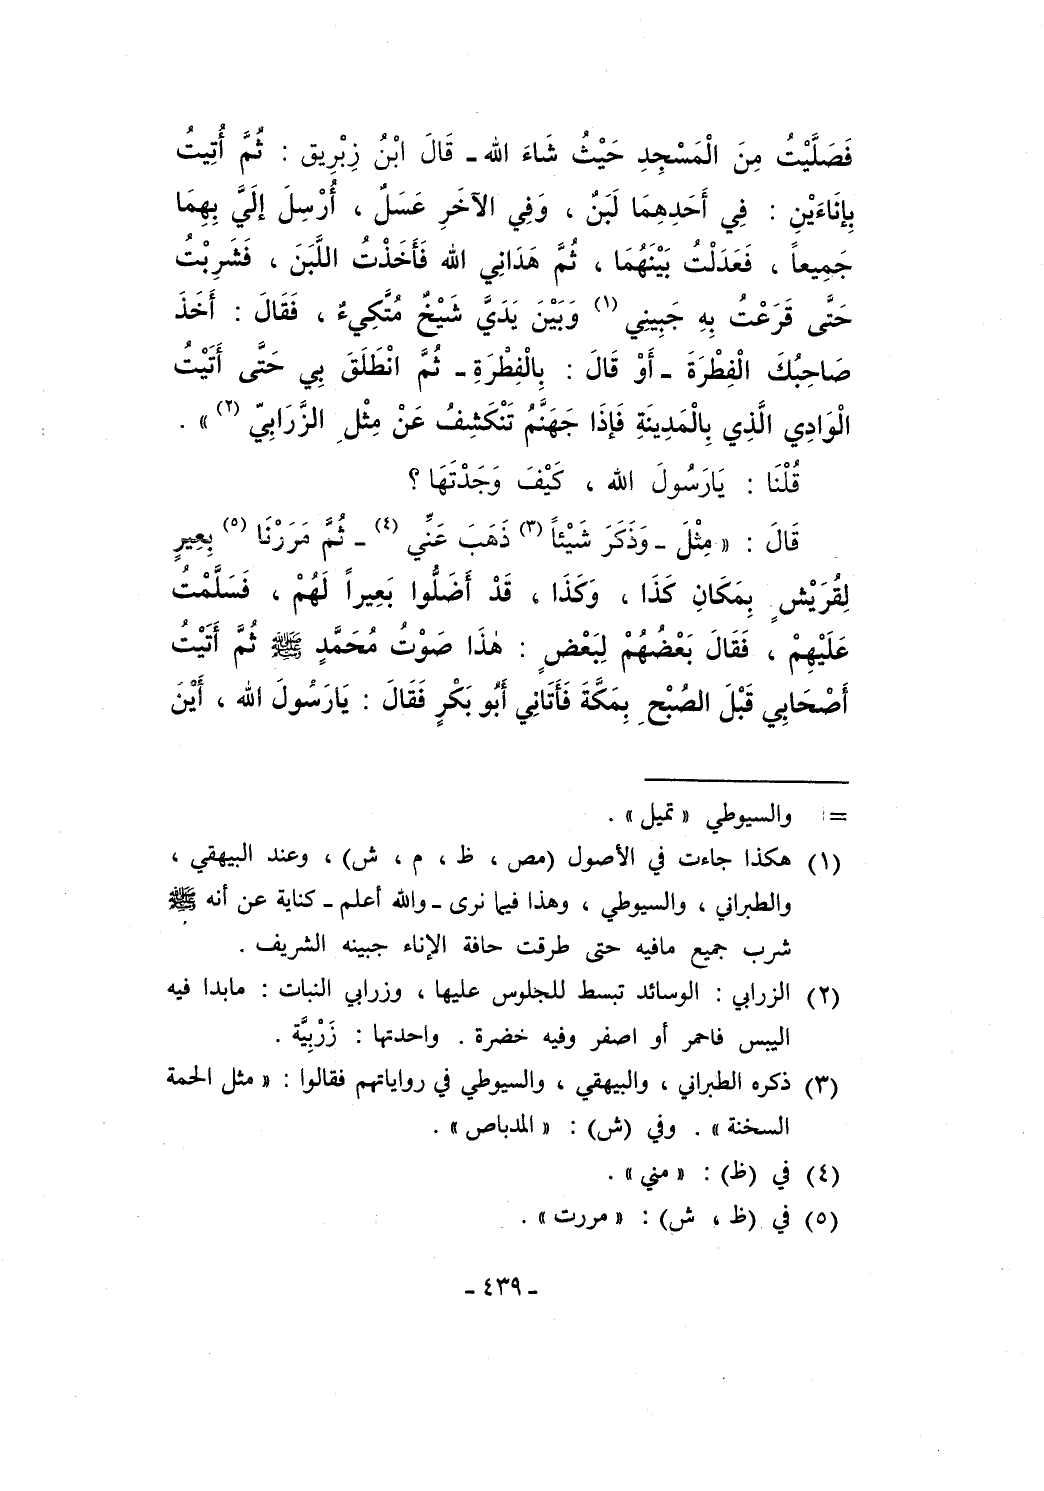 فَصَلَّيْتُ مِنَ الْمَسْجِدِ حَيْثُ شَاءَ الله ـ قَالَ ابْنُ زِبْرِيق : ثُمَّ أُتِيتُ
بِإنَاءَيْنِ : فِي أَحَدِهِمَا لَبَنٌ ، وَفِي الآخَرِ عَسَلٌ ، أُرْسِلَ إلَيَّ بِهِمَا
جَمِيعاً ، فَعَدَلْتُ بَيْنَهُمَا ، ثُمَّ هَدَانِي الله فَأَخَذْتُ اللَّبَنَ ، فَشَرِبْتُ
حَتَّى قَرَعْتُ بِهِ جَبِينِي (١) وَبَيْنَ يَدَيَّ شَيْخٌ مُتَّكِيءٌ ، فَقَالَ : أَخَذَ
صَاحِبُكَ الْفِطْرَةَ ـ أَوْ قَالَ : بِالْفِطْرَةِ ـ ثُمَّ انْطَلَقَ بِي حَتَّى أَتَيْتُ
الْوَادِي الَّذِي بِالْمَدِينَةِ فَإذَا جَهَنَّمُ تَنْكَشِفُ عَنْ مِثْلِ الزَّرَابِيّ (٢) » .
قُلْنَا : يَارَسُولَ الله ، كَيْفَ وَجَدْتَهَا ؟
قَالَ : « مِثْلَ ـ وَذَكَرَ شَيْئاً (٣) ذَهَبَ عَنِّي (٤) ـ ثُمَّ مَرَرْنَا (٥) بِعِيرٍ
لِقُرَيْشٍ بِمَكَانِ كَذَا ، وَكَذَا ، قَدْ أَضَلُّوا بَعِيراً لَهُمْ ، فَسَلَّمْتُ
عَلَيْهِمْ ، فَقَالَ بَعْضُهُمْ لِبَعْضٍ : هٰذَا صَوْتُ مُحَمَّدٍ ﷺ ثُمَّ أَتَيْتُ
أَصْحَابِي قَبْلَ الصُّبْحِ بِمَكَّةَ فَأَتَانِي أَبُو بَكْرٍ فَقَالَ : يَارَسُولَ الله ، أَيْنَ
= والسيوطي « تميل » .
(١) هكذا جاءت في الأصول (مص ، ظ ، م ، ش) ، وعند البيهقي ،
والطبراني ، والسيوطي ، وهذا فيما نرى ـ والله أعلم ـ كناية عن أنه ﷺ
شرب جميع مافيه حتى طرقت حافة الإناء جبينه الشريف .
(٢) الزرابي : الوسائد تبسط للجلوس عليها ، وزرابي النبات : مابدا فيه
اليبس فاحمر أو اصفر وفيه خضرة . واحدتها : زَرْبِيَّة .
(٣) ذكره الطبراني ، والبيهقي ، والسيوطي في رواياتهم فقالوا : « مثل الحمة
السخنة » . وفي (ش) : « المدباص » .
(٤) في (ظ) : « مني » .
(٥) في (ظ ، ش) : « مررت » .
ـ ٤٣٩ ـ